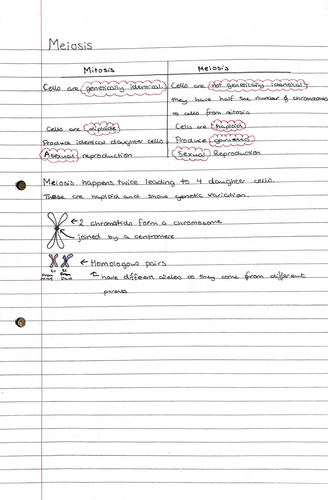 Meiosis
Mitosis
Meiosis
Cells are genetically identical.
Cells are not genetically identical -
they have half the number of chromosomes
to cells from mitosis
Cells are diploid
Cells are haploid
Produce identical daughter cells
Produce gametes
Asexual reproduction
Sexual Reproduction
Meiosis happens twice leading to 4 daughter cells.
These are haploid and show genetic variation.
← 2 chromatids form a chromosome
joined by a centromere
← Homologous pairs
from
from
have different alleles as they come from different